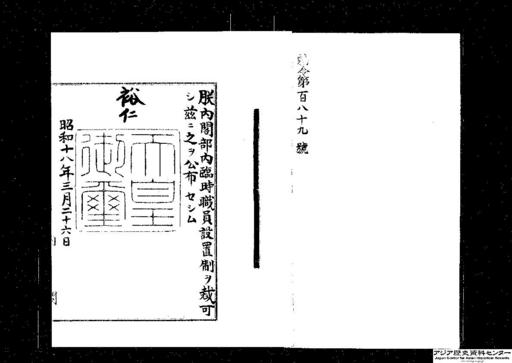 勅令第百八十九號
朕內閣部內臨時職員設置制ヲ裁可
シ茲ニ之ヲ公布セシム
裕仁
天皇御璽
昭和十八年三月二十六日
アジア歴史資料センター
Japan Center for Asian Historical Records